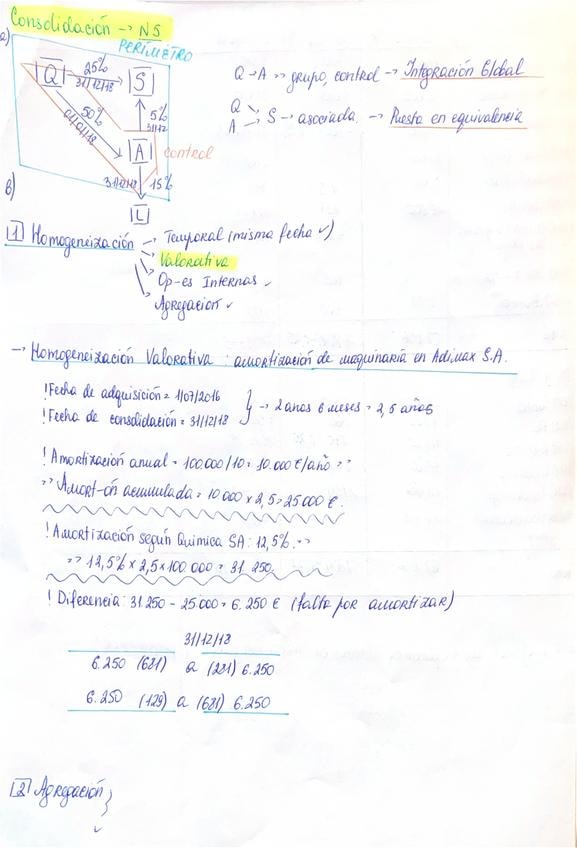 Consolidación → N5
a)
PERÍMETRO
Q 25% S
31/12/18
50%
01/01/18
5%
31/12
A control
31/12/18 15%
L
Q → A → grupo, control → Integración Global
Q
A → S → asociada. → Puesta en equivalencia
b)
1 Homogeneización → Temporal (misma fecha ✓)
→ Valorativa
→ Op-es Internas ✓
→ Agregación ✓
→ Homogeneización Valorativa: amortización de maquinaria en Adimax S.A.
! Fecha de adquisición = 1/07/2016
! Fecha de consolidación = 31/12/18 } → 2 anos 6 meses = 2,5 años
! Amortización anual = 100 000/10 = 10.000 €/año =>
=> Amort-ón acumulada = 10 000 x 2,5 = 25 000 €.
! Amortización según Quimica SA: 12,5%. =>
=> 12,5% x 2,5 x 100 000 = 31 250.
! Diferencia: 31.250 - 25.000 = 6.250 € (falta por amortizar)
31/12/18
6.250 (681) a (281) 6.250
6.250 (129) a (681) 6.250
2 Agregación }